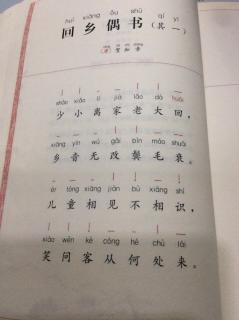 huí xiāng ǒu shū qí yī
回乡偶书（其一）
唐 贺知章
shào xiǎo lí jiā lǎo dà huí
少小离家老大回，
xiāng yīn wú gǎi bìn máo shuāi
乡音无改鬓毛衰。
ér tóng xiāng jiàn bù xiāng shí
儿童相见不相识，
xiào wèn kè cóng hé chù lái
笑问客从何处来。